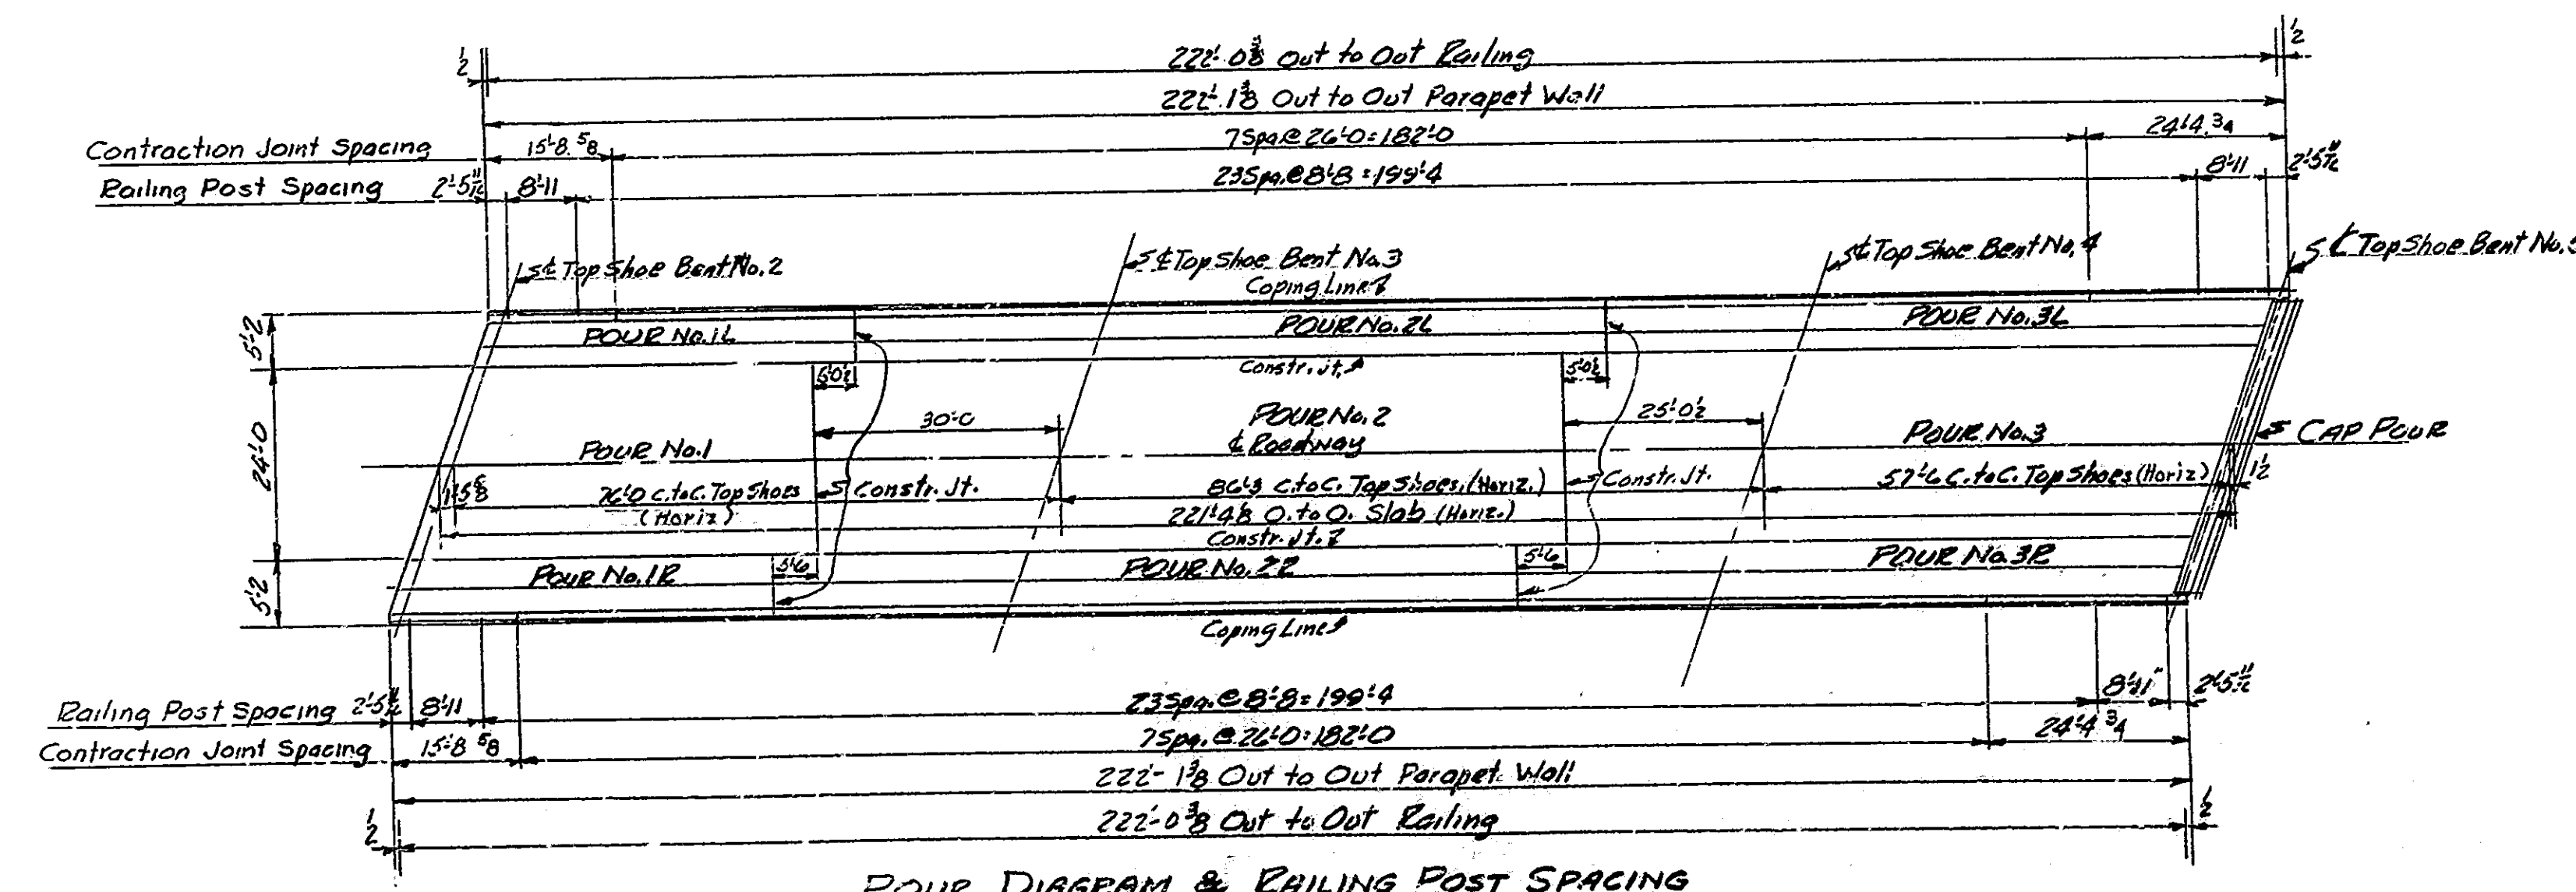 ½
222'-0⅜ Out to Out Railing
½
222'-1⅜ Out to Out Parapet Wall
Contraction Joint Spacing 15'-8 ⅝ 7 Spa. @ 26'-0 = 182'-0 24'-4 ¾
Railing Post Spacing 2'-5 11/16 8'-11 23 Spa. @ 8'-8 = 199'-4 8'-11 2'-5 11/16
℄ Top Shoe Bent No. 2
℄ Top Shoe Bent No. 3
℄ Top Shoe Bent No. 4
℄ Top Shoe Bent No. 5
Coping Line
5'-2
POUR No. 1L
POUR No. 2L
POUR No. 3L
5'-0½
Constr. Jt.
5'-0½
24'-0
30'-0
POUR No. 2
25'-0½
POUR No. 1
℄ Roadway
POUR No. 3
CAP POUR
1'-5⅝
76'-0 C. to C. Top Shoes
(Horiz)
Constr. Jt.
86'-3 C. to C. Top Shoes. (Horiz.)
Constr. Jt.
57'-6 C. to C. Top Shoes (Horiz)
1½
O. to O. Slab (Horiz.)
Constr. Jt.
5'-2
POUR No. 1R
5'-6
POUR No. 2R
5'-6
POUR No. 3R
Coping Line
Railing Post Spacing 2'-5 11/16 8'-11 23 Spa. @ 8'-8 = 199'-4 8'-11" 2'-5 11/16
Contraction Joint Spacing 15'-8 ⅝ 7 Spa. @ 26'-0 = 182'-0 24'-4 ¾
222'-1⅜ Out to Out Parapet Wall
½
222'-0⅜ Out to Out Railing
½
POUR DIAGRAM & RAILING POST SPACING